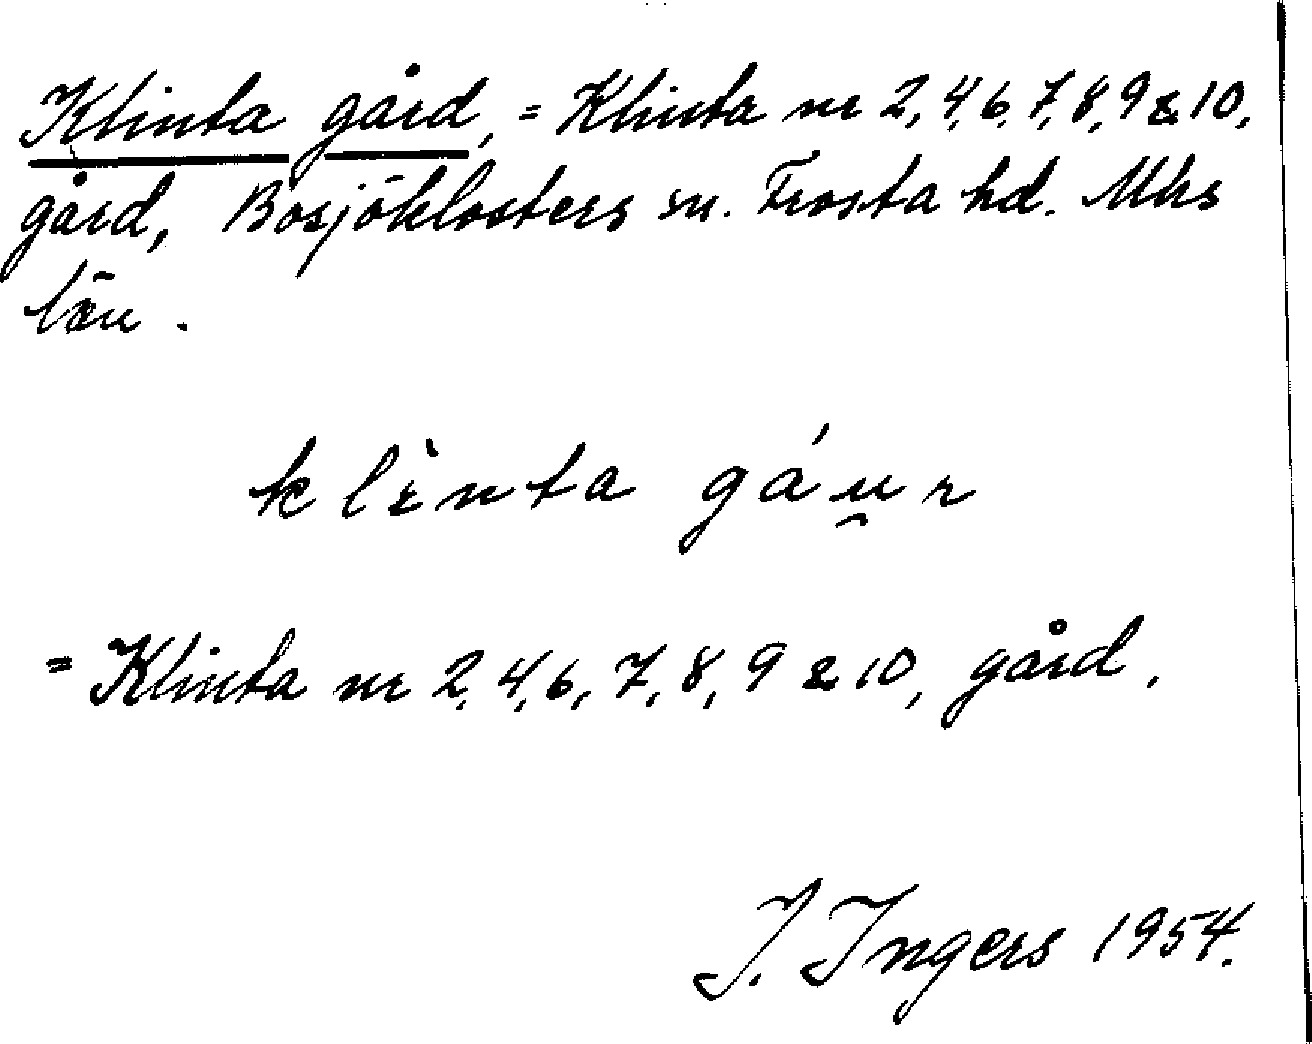 Klinta gård, = Klinta nr 2, 4, 6, 7, 8, 9 & 10,
gård, Bosjöklosters sn. Frosta hd. Mhs
län.
klìnta gáu̯r
= Klinta nr 2, 4, 6, 7, 8, 9 & 10, gård.
I. Ingers 1954.